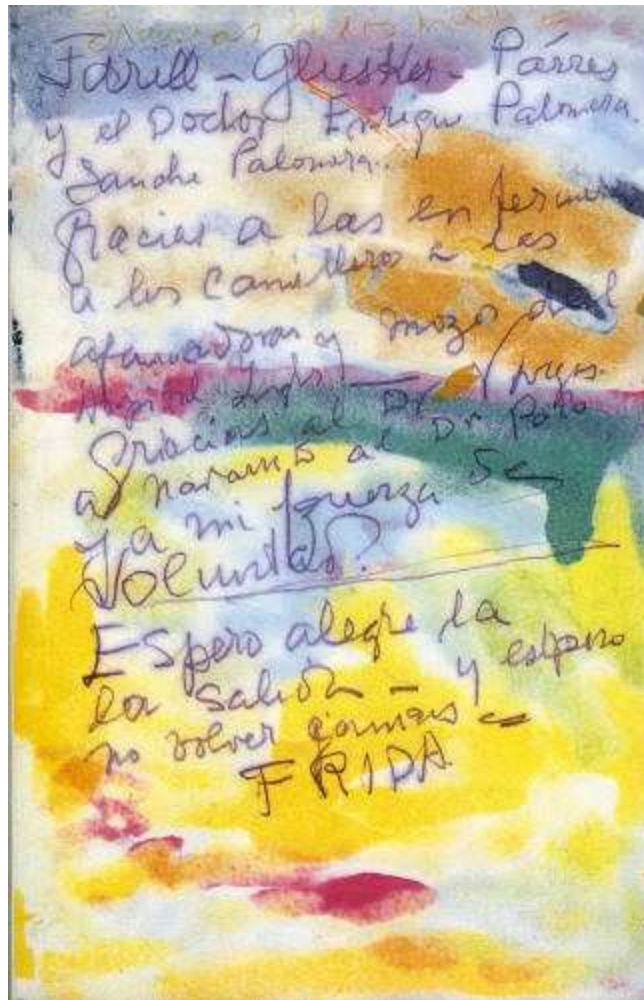 Gracias a los médicos
Farill - Glusker - Párres
y el Doctor Enrique Palomera
Sanche Palomera.
Gracias a las enfermeras
a los camilleros a las
afanadoras y mozos del
Hospital Inglés -
Gracias al Dr Vargas
a Navarro al Dr Polo
y a mi fuerza de
Voluntad.
Espero alegre la
la salida - y espero
no volver jamas -
FRIDA